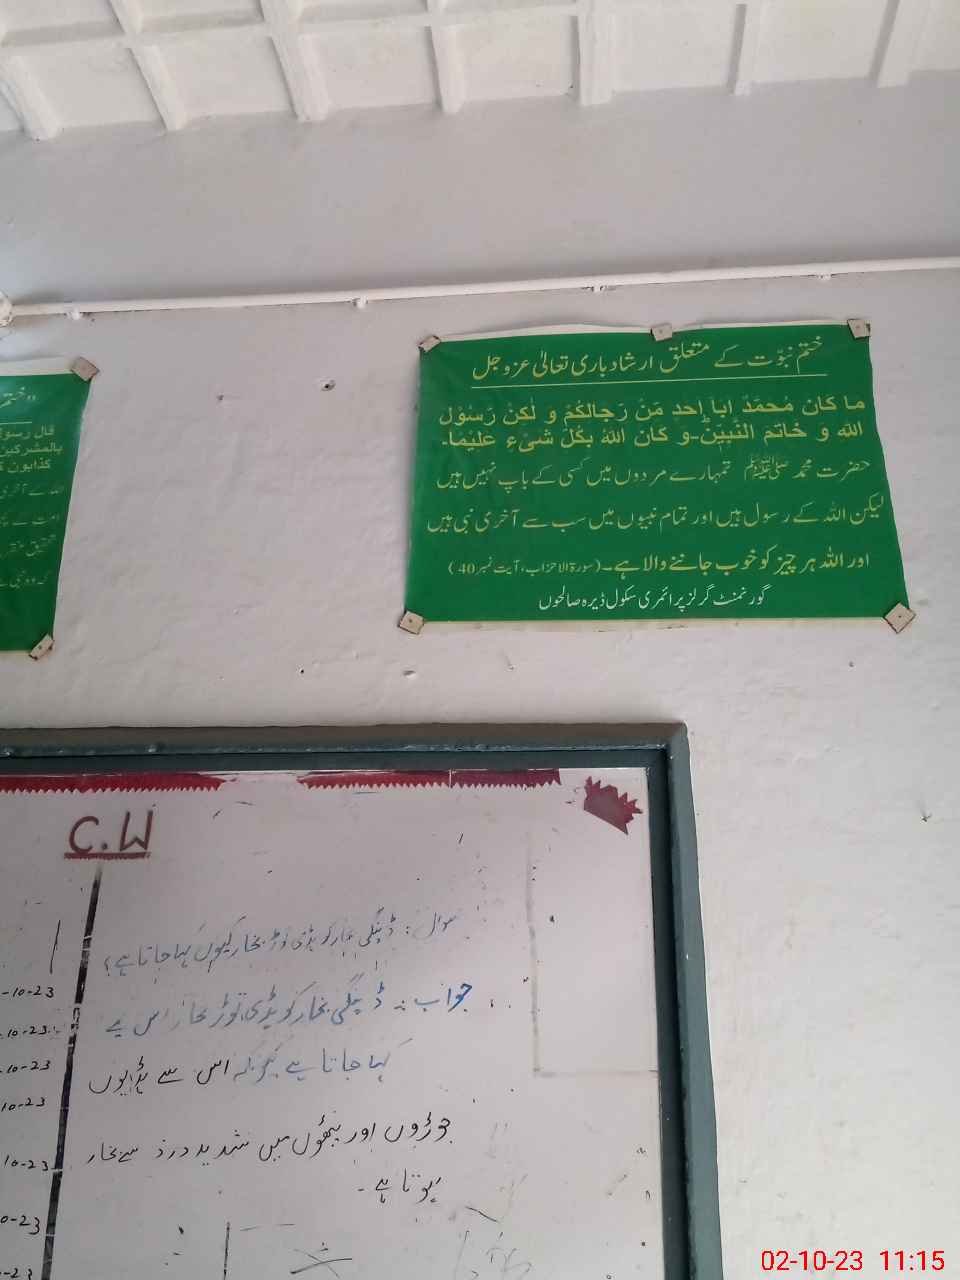 ختم نبوّت کے متعلق ارشاد باری تعالیٰ عزوجل
ما كان مُحمَّدٌ اباَ احد منْ رّجالكُمْ و لٰكنْ رّسُوْل
اللّٰه و خاتم النّبيّن-و كان اللّٰهُ بكُلّ شیْءٍ عليْمًا-
حضرت محمد ﷺ تمہارے مردوں میں کسی کے باپ نہیں ہیں
لیکن اللہ کے رسول ہیں اور تمام نبیوں میں سب سے آخری نبی ہیں
اور اللہ ہر چیز کو خوب جاننے والا ہے۔(سورۃ الاحزاب، آیت نمبر 40)
گورنمنٹ گرلز پرائمری سکول ڈیرہ صالحوں
قال رسو
بالمشركين
كذابون
C.W
سوال: ڈینگی بخار کو ہڈی توڑ بخار کیوں کہا جاتا ہے؟
جواب:۔ ڈینگی بخار کو ہڈی توڑ بخار اس لیے
کہا جاتا ہے کیونکہ اس سے ہڈیوں
جوڑوں اور پٹھوں میں شدید درد سے بخار
ہوتا ہے۔
-10-23
10-23
-10-23
10-23
10-23
0-23
-23
02-10-23 11:15